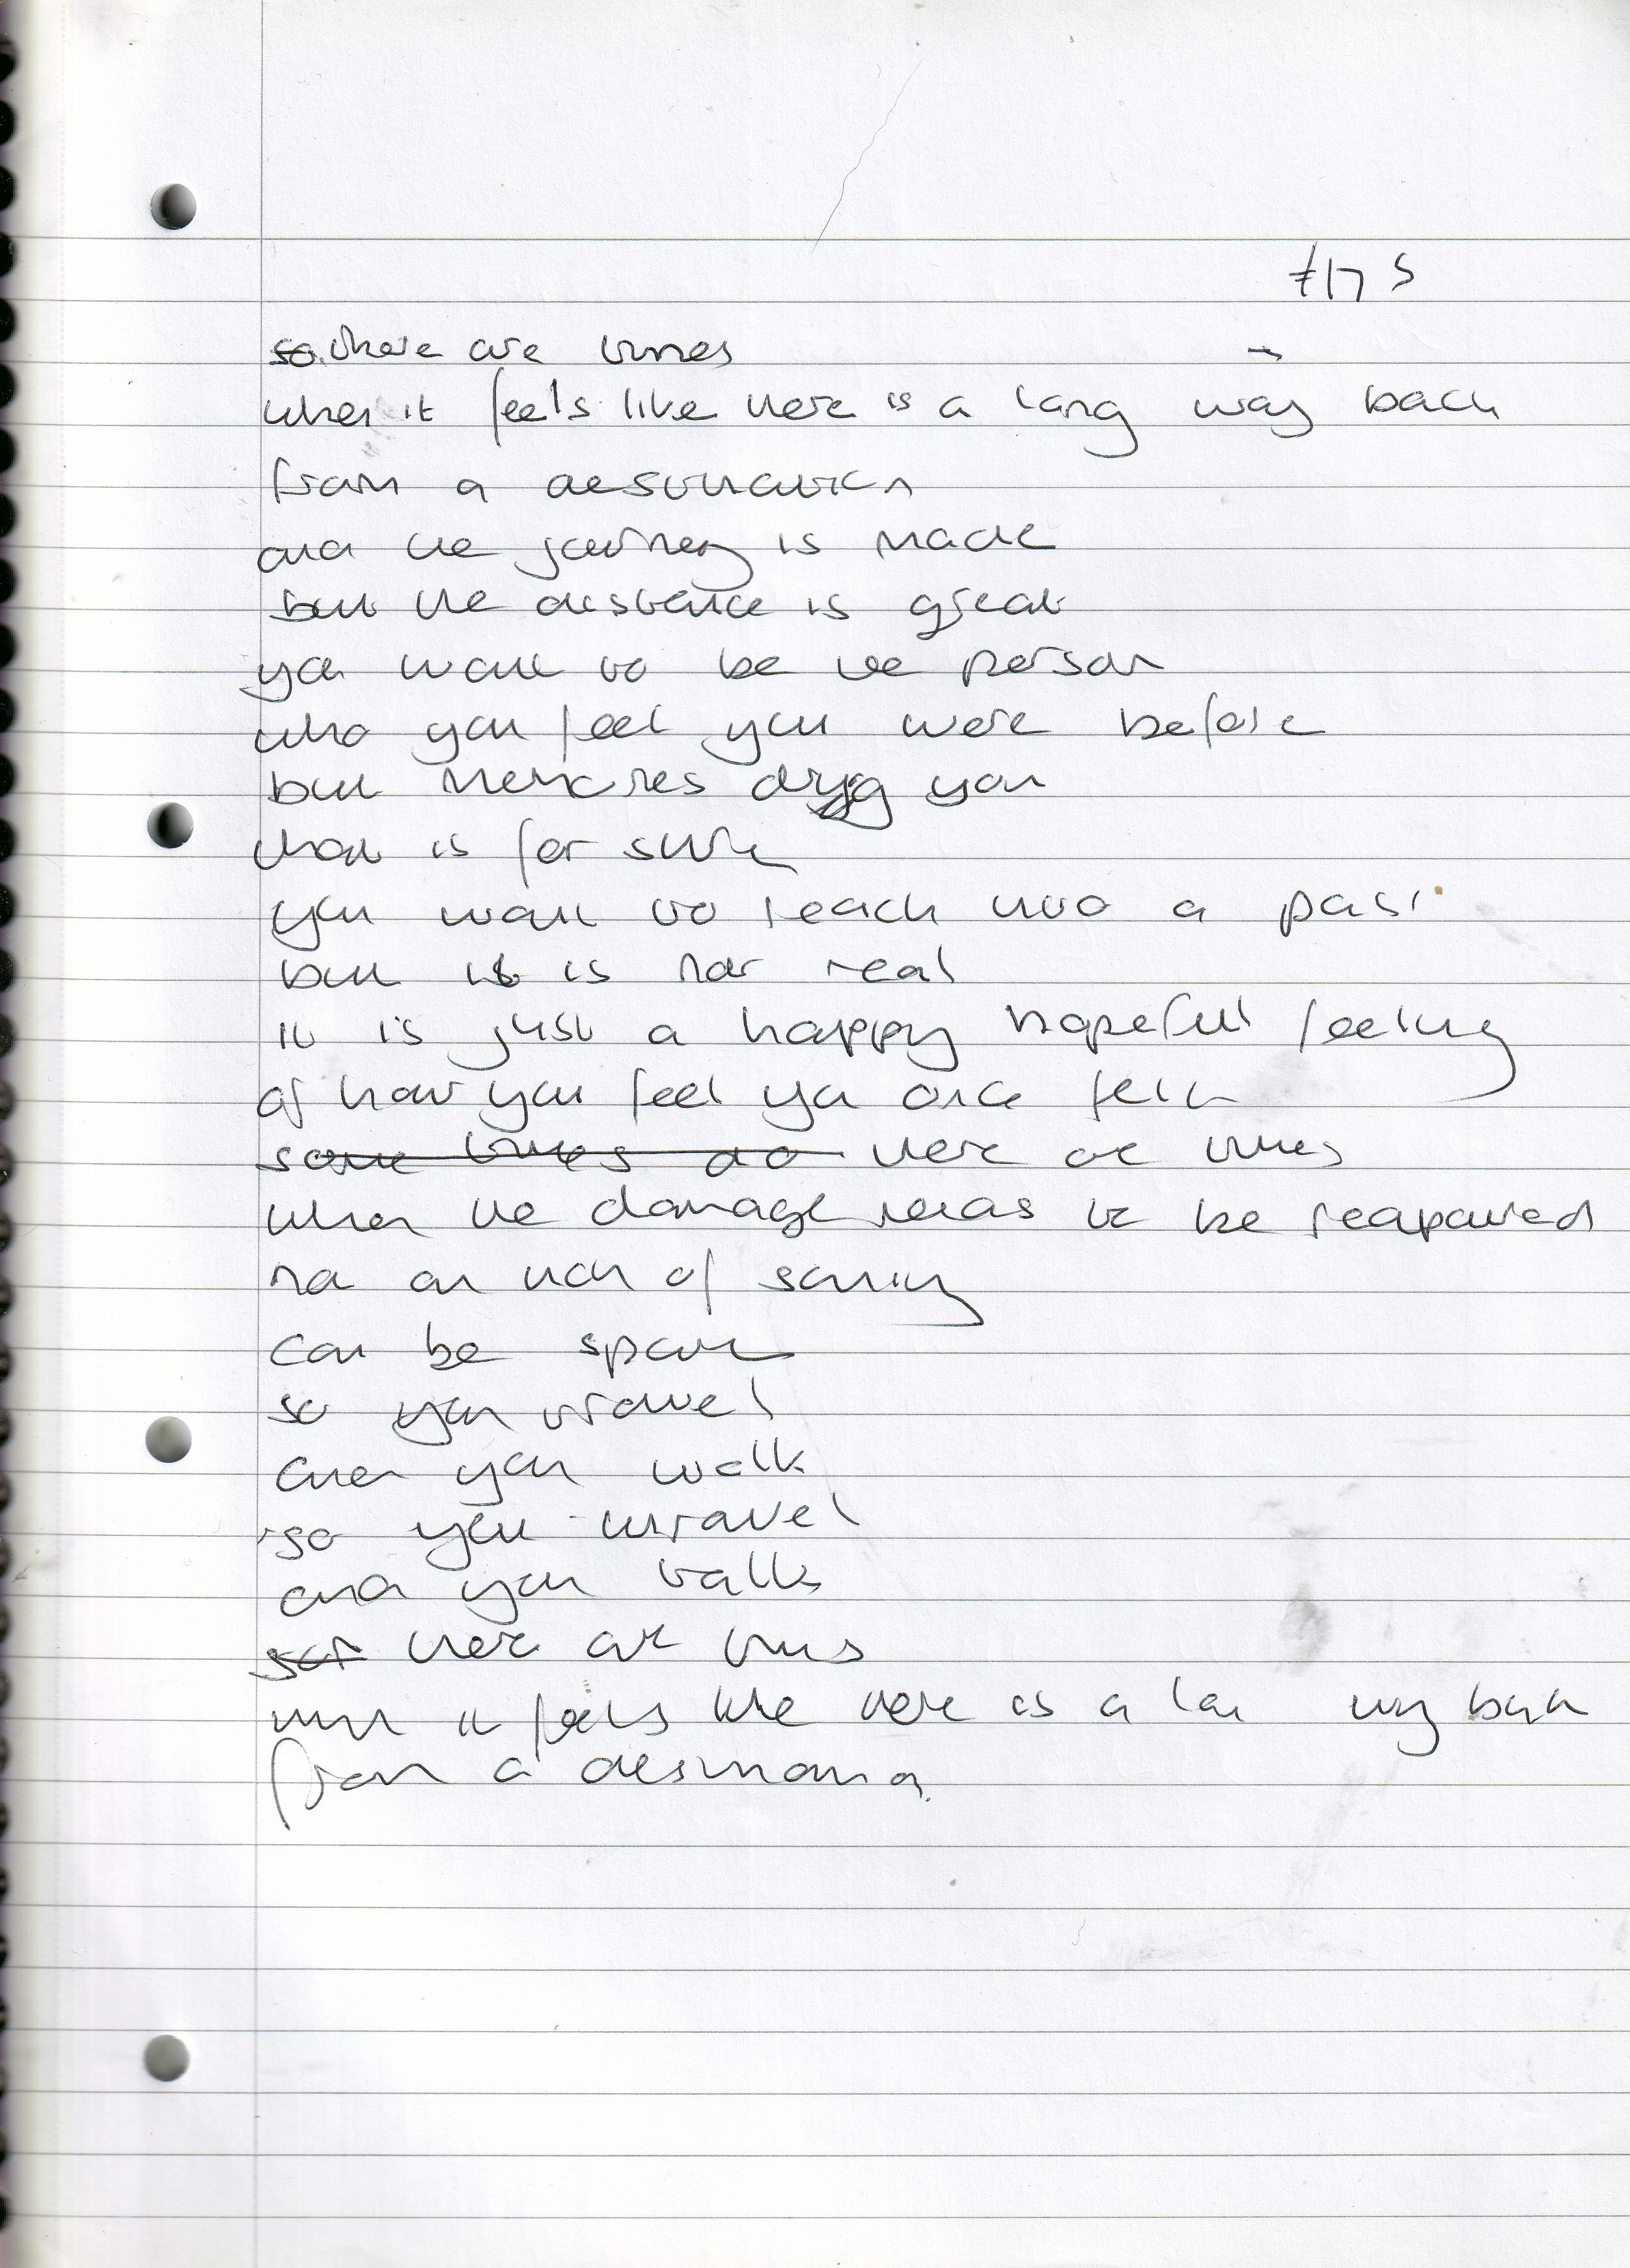 so there are times
when it feels like there is a long way back
from a destination
and the journey is made
but the distance is great
you want to be the person
who you feel you were before
but memories drag you
that is for sure
you want to reach into a past
but it is not real
it is just a happy hopeful feeling
of how you feel you once felt
some times do there are times
when the damage needs to be reapaired
not an of
can be spare
so you travel
and you walk
so you unravel
and you talk
there are times
when it feels like there is a long way back
from a destination